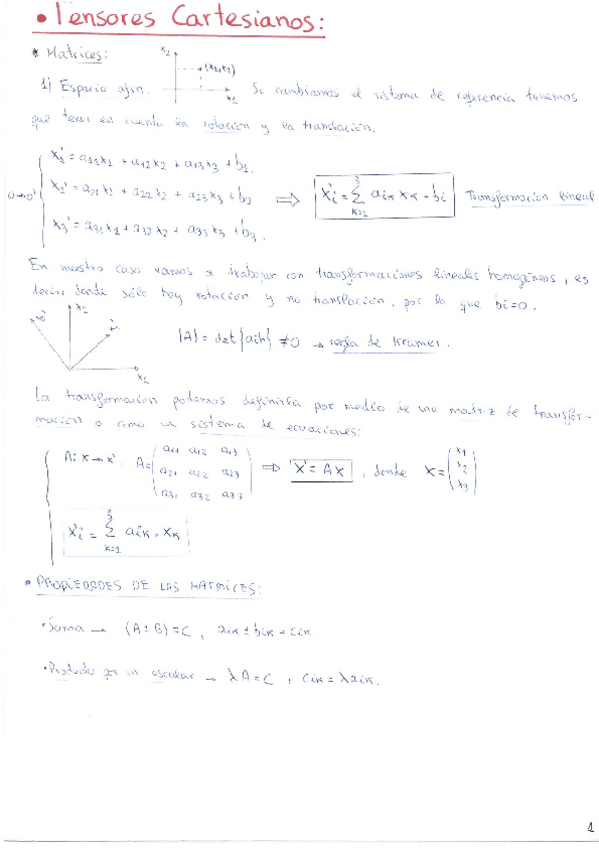 • Tensores Cartesianos:
* Matrices:
1) Espacio afín. x₂ (x₁,x₂) x₁ Si cambiamos el sistema de referencia tenemos
que tener en cuenta la rotación y la translación.
x₁' = a₁₁x₁ + a₁₂x₂ + a₁₃x₃ + b₁.
0→0' x₂' = a₂₁x₁ + a₂₂x₂ + a₂₃x₃ + b₂ ⇒ xᵢ' = Σ³ₖ₌₁ aᵢₖ xₖ + bᵢ Transformación lineal
x₃' = a₃₁x₁ + a₃₂x₂ + a₃₃x₃ + b₃.
En nuestro caso vamos a trabajar con transformaciones lineales homogéneas, es
decir, donde sólo hay rotación y no translación, por lo que bi=0.
x₂ x₁
|A| = det{aik} ≠0 → regla de Kramer.
La transformación podemos definirla por medio de una matriz de transfor-
mación o como un sistema de ecuaciones:
A: x→x' A = (a₁₁ a₁₂ a₁₃
a₂₁ a₂₂ a₂₃
a₃₁ a₃₂ a₃₃) ⇒ x' = Ax, donde x = (x₁
x₂
x₃)
xᵢ' = Σ³ₖ₌₁ aᵢₖ · xₖ
• PROPIEDADES DE LAS MATRICES:
• Suma → (A±B)=C, aik ± bik = cik
• Producto por un escalar → λA=C, cik = λaik.
1